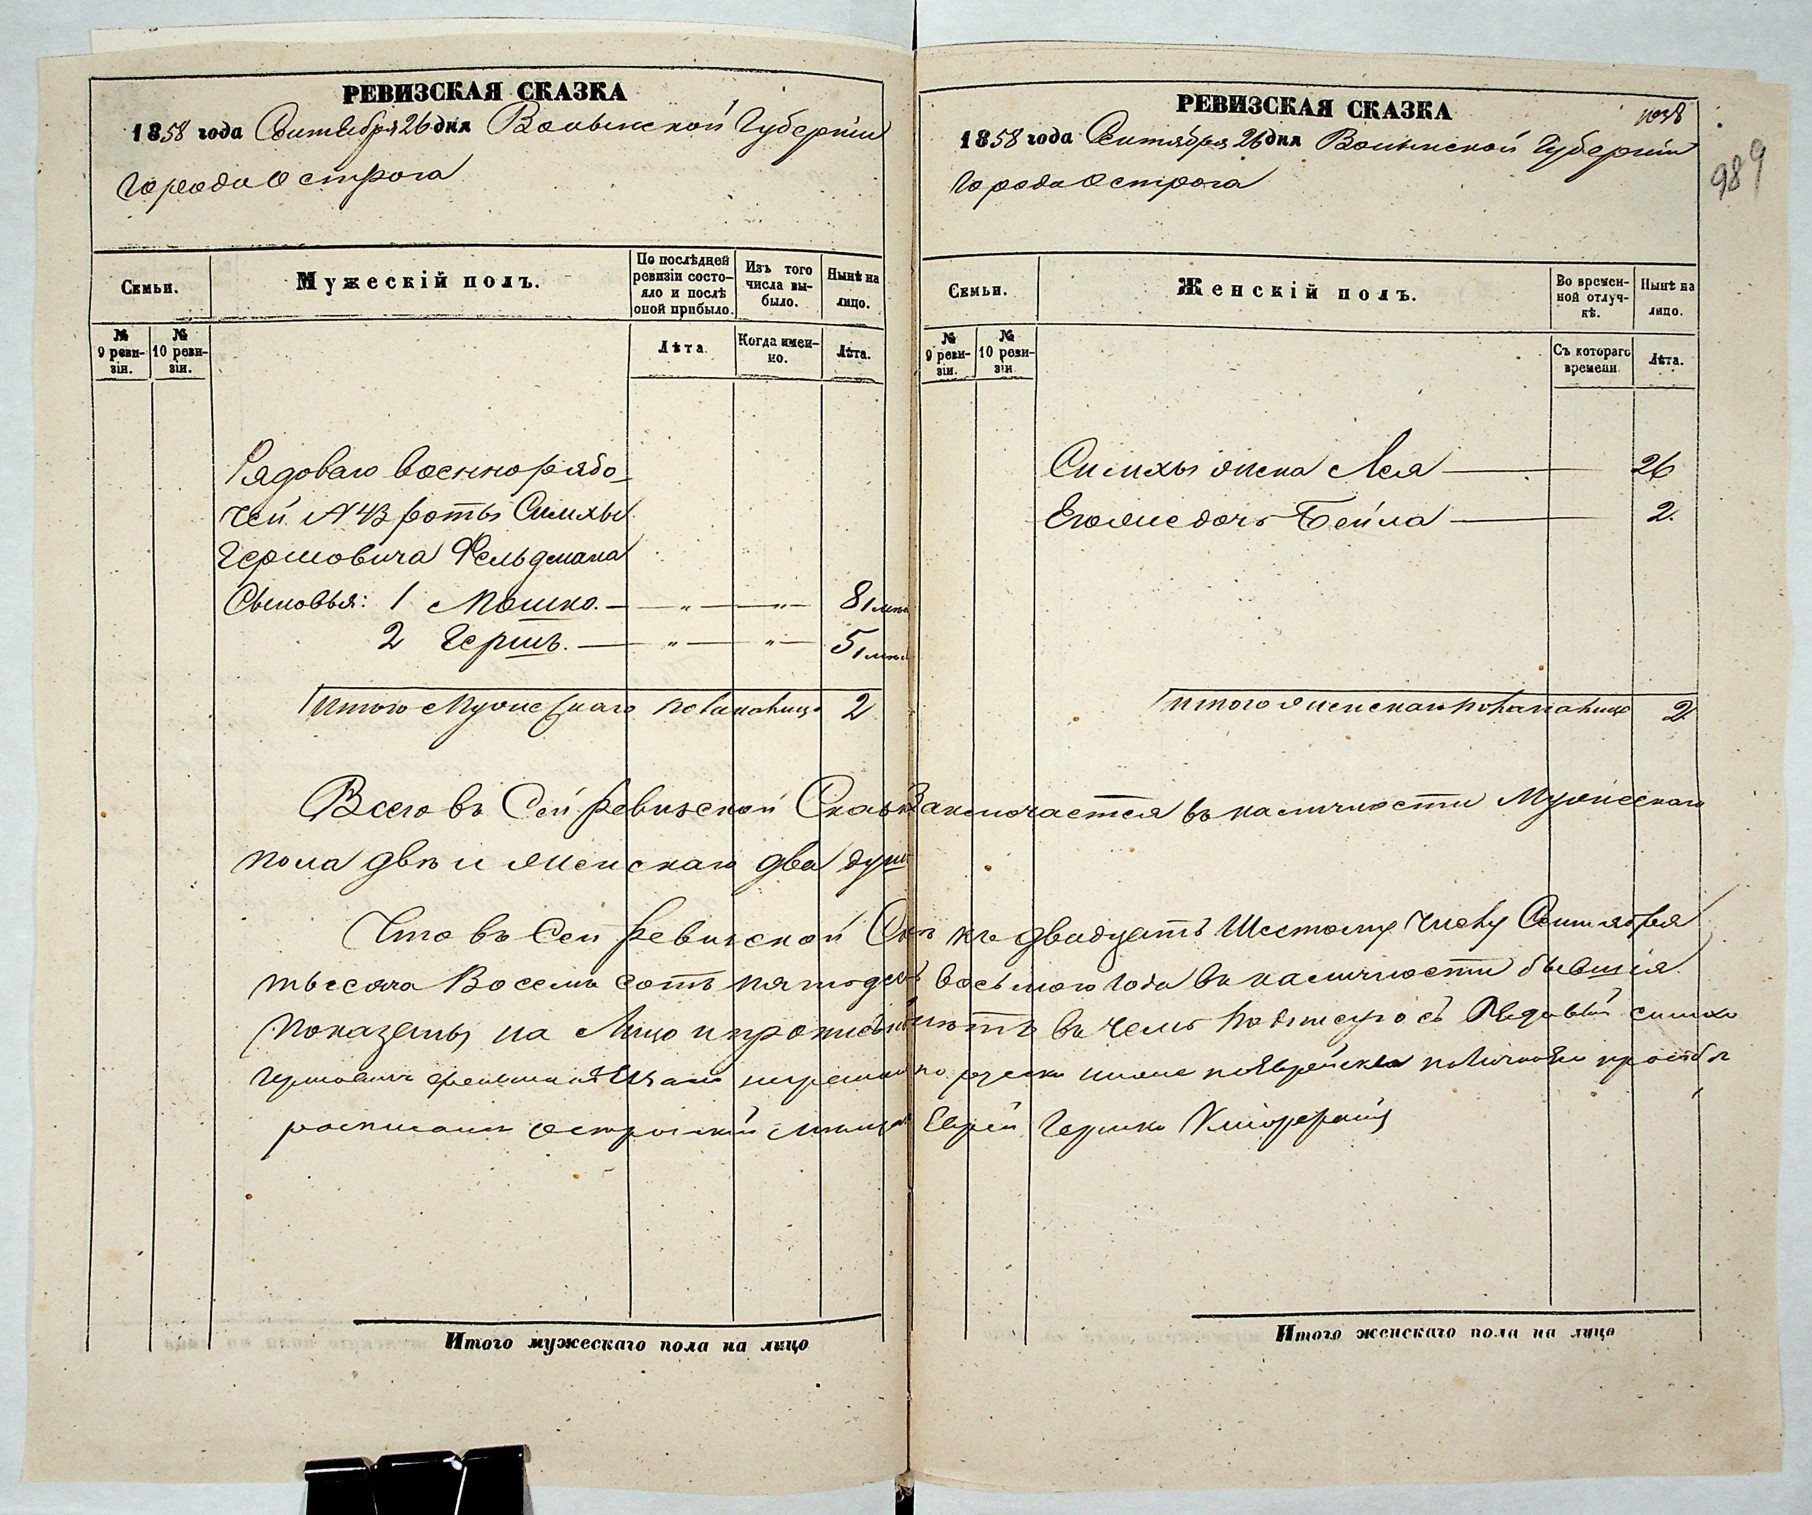 РЕВИЗСКАЯ СКАЗКА
1858 года Сентября 26 дня Волынской Губерніи
города Острога
Семьи.
Мужескій полъ.
По послѣдней ревизіи состо-
яло и послѣ
оной прибыло.
Изъ того
числа вы-
было.
Нынѣ на
лицо.
№
9 реви-
зіи.
№
10 реви-
зіи.
Лѣта.
Когда имен-
но.
Лѣта.
Рядоваго военнорабо-
чей № 43 роты Симхи
Гершовича Фельдмана
Сыновья: 1 Мошко. — „ — „ — 8
2 Гершъ. — „ — „ — 5
Итого Мужескаго пола на лицо 2
Итого мужескаго пола на лицо
РЕВИЗСКАЯ СКАЗКА
989
1858 года Сентября 26 дня Волынской Губерніи
города Острога
Семьи.
Женскій полъ.
Во времен-
ной отлуч-
кѣ.
Нынѣ на
лицо.
№
9 реви-
зіи.
№
10 реви-
зіи
Съ котораго
времени.
Лѣта.
Симхи жена Лея — 26
Егоже дочь Бейла — 2.
Итого женскаго пола на лицо 2
Всего въ Сей ревизской Сказкѣ Заключается въ наличности Мужескаго
пола двѣ и женскаго два душъ
Что въ Сей ревизской къ двадцать Шестому числу Сентября
тысяча Восемь сотъ пятьдесятъ восьмого года въ наличности бывшія
показаны на Лицо и нѣтъ въ чемъ подписуюсь Рядовый Симха
Гершовичъ по русски по Еврейски по личной просьбѣ
росписался Острогскій Еврей Гершко
Итого женскаго пола на лицо